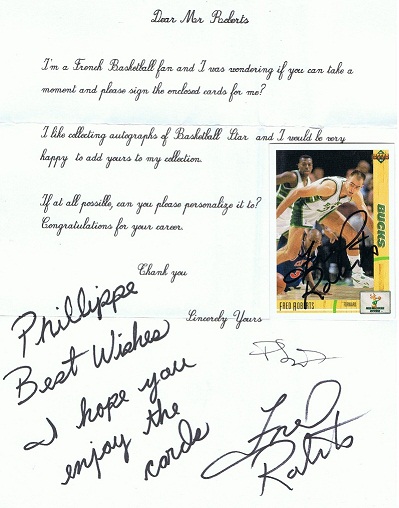 Dear Mr Roberts
I'm a French Basketball fan and I was wondering if you can take a
moment and please sign the enclosed cards for me?
I like collecting autographs of Basketball Star and I would be very
happy to add yours to my collection.
If at all possible, can you please personalize it to?
Congratulations for your career.
Thank you
Sincerely Yours
BUCKS
FRED ROBERTS
FORWARD
Phillippe
Best Wishes
I hope you
enjoy the
cards
Fred
Roberts